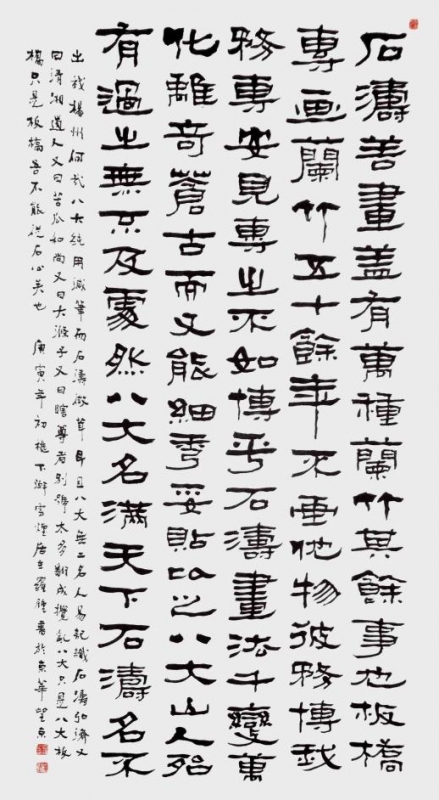 石濤善畫蓋有萬種蘭竹其餘事也板橋
專画蘭竹五十餘年不畫他物彼務博我
務專安見專之不如博乎石濤畫法千變萬
化離奇蒼古而又能細秀妥貼比之八大山人殆
有過之無不及處然八大名滿天下石濤名不
出我楊州何哉八大純用減筆而石濤微茸耳且八大無二名人易記識石濤弘濟又
曰清湘道人又曰苦瓜和尚又曰大滌子又曰瞎尊者別號太多翻成攪亂八大只是八大板
橋只是板橋吾不能從石公矣也 庚寅年初 書於京華望京